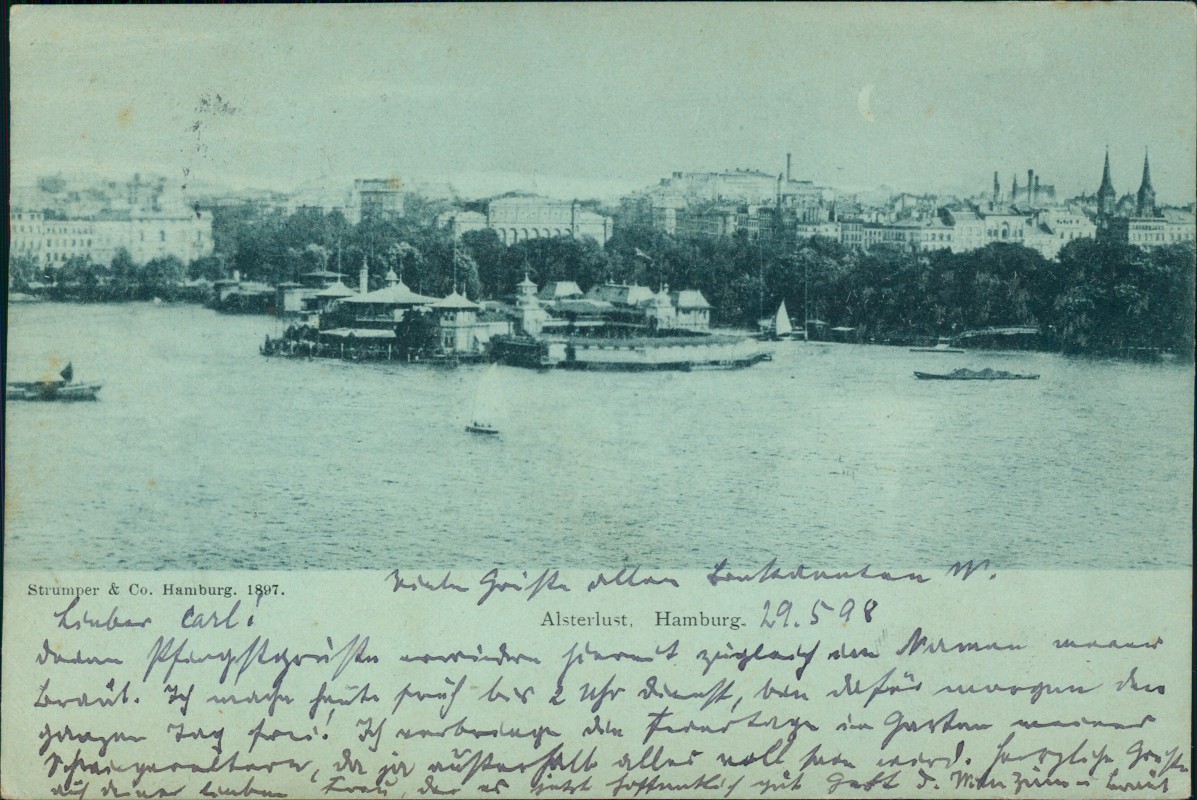 Strumper & Co. Hamburg. 1897.
Viele Grüße allen Bekannten W.
Alsterlust, Hamburg. 29.5.98
Lieber Carl!
deren Pfingstgrüße erwidern hiermit zugleich im Namen meiner
Braut. Ich mache heute früh bis 2 Uhr Dienst, bin dafür morgen den
ganzen Tag frei! Ich verbringe die Feiertage im Garten meiner
Schwiegereltern, da ja außerhalb alles voll sein wird. Herzliche Grüße
auch deiner lieben Frau, der es jetzt hoffentlich gut geht D. Braut